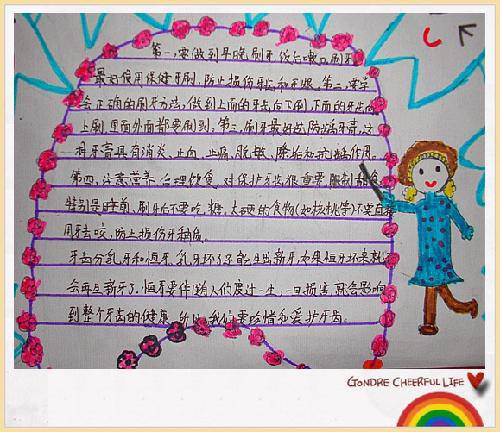 第一,要做到早晚刷牙饭后漱口。刷牙
最好使用保健牙刷,防止损伤牙齿和牙龈。第二,要学
会正确的刷牙方法,做到上面的牙齿向下刷,下面的牙齿向
上刷,里面外面都要刷到。第三,刷牙最好选防龋牙膏,这
种牙膏具有消炎、止血、止痛、脱敏、除
第四,注意营养,合理饮食,对保护牙齿很重要。限制
特别是睡前、刷牙后不要吃糖,太硬的食物(如核桃等)不要直接
用牙去咬,防止损伤牙釉质。
牙齿分乳牙和恒牙,乳牙坏了还能生出新牙,如果恒牙坏
会再生新牙了。恒牙要伴随人们度过一生,一旦损害,就会影响
到整个牙齿的健康。所以,我们要珍惜和爱护牙齿。
GONDRE CHEERFUL LIFE